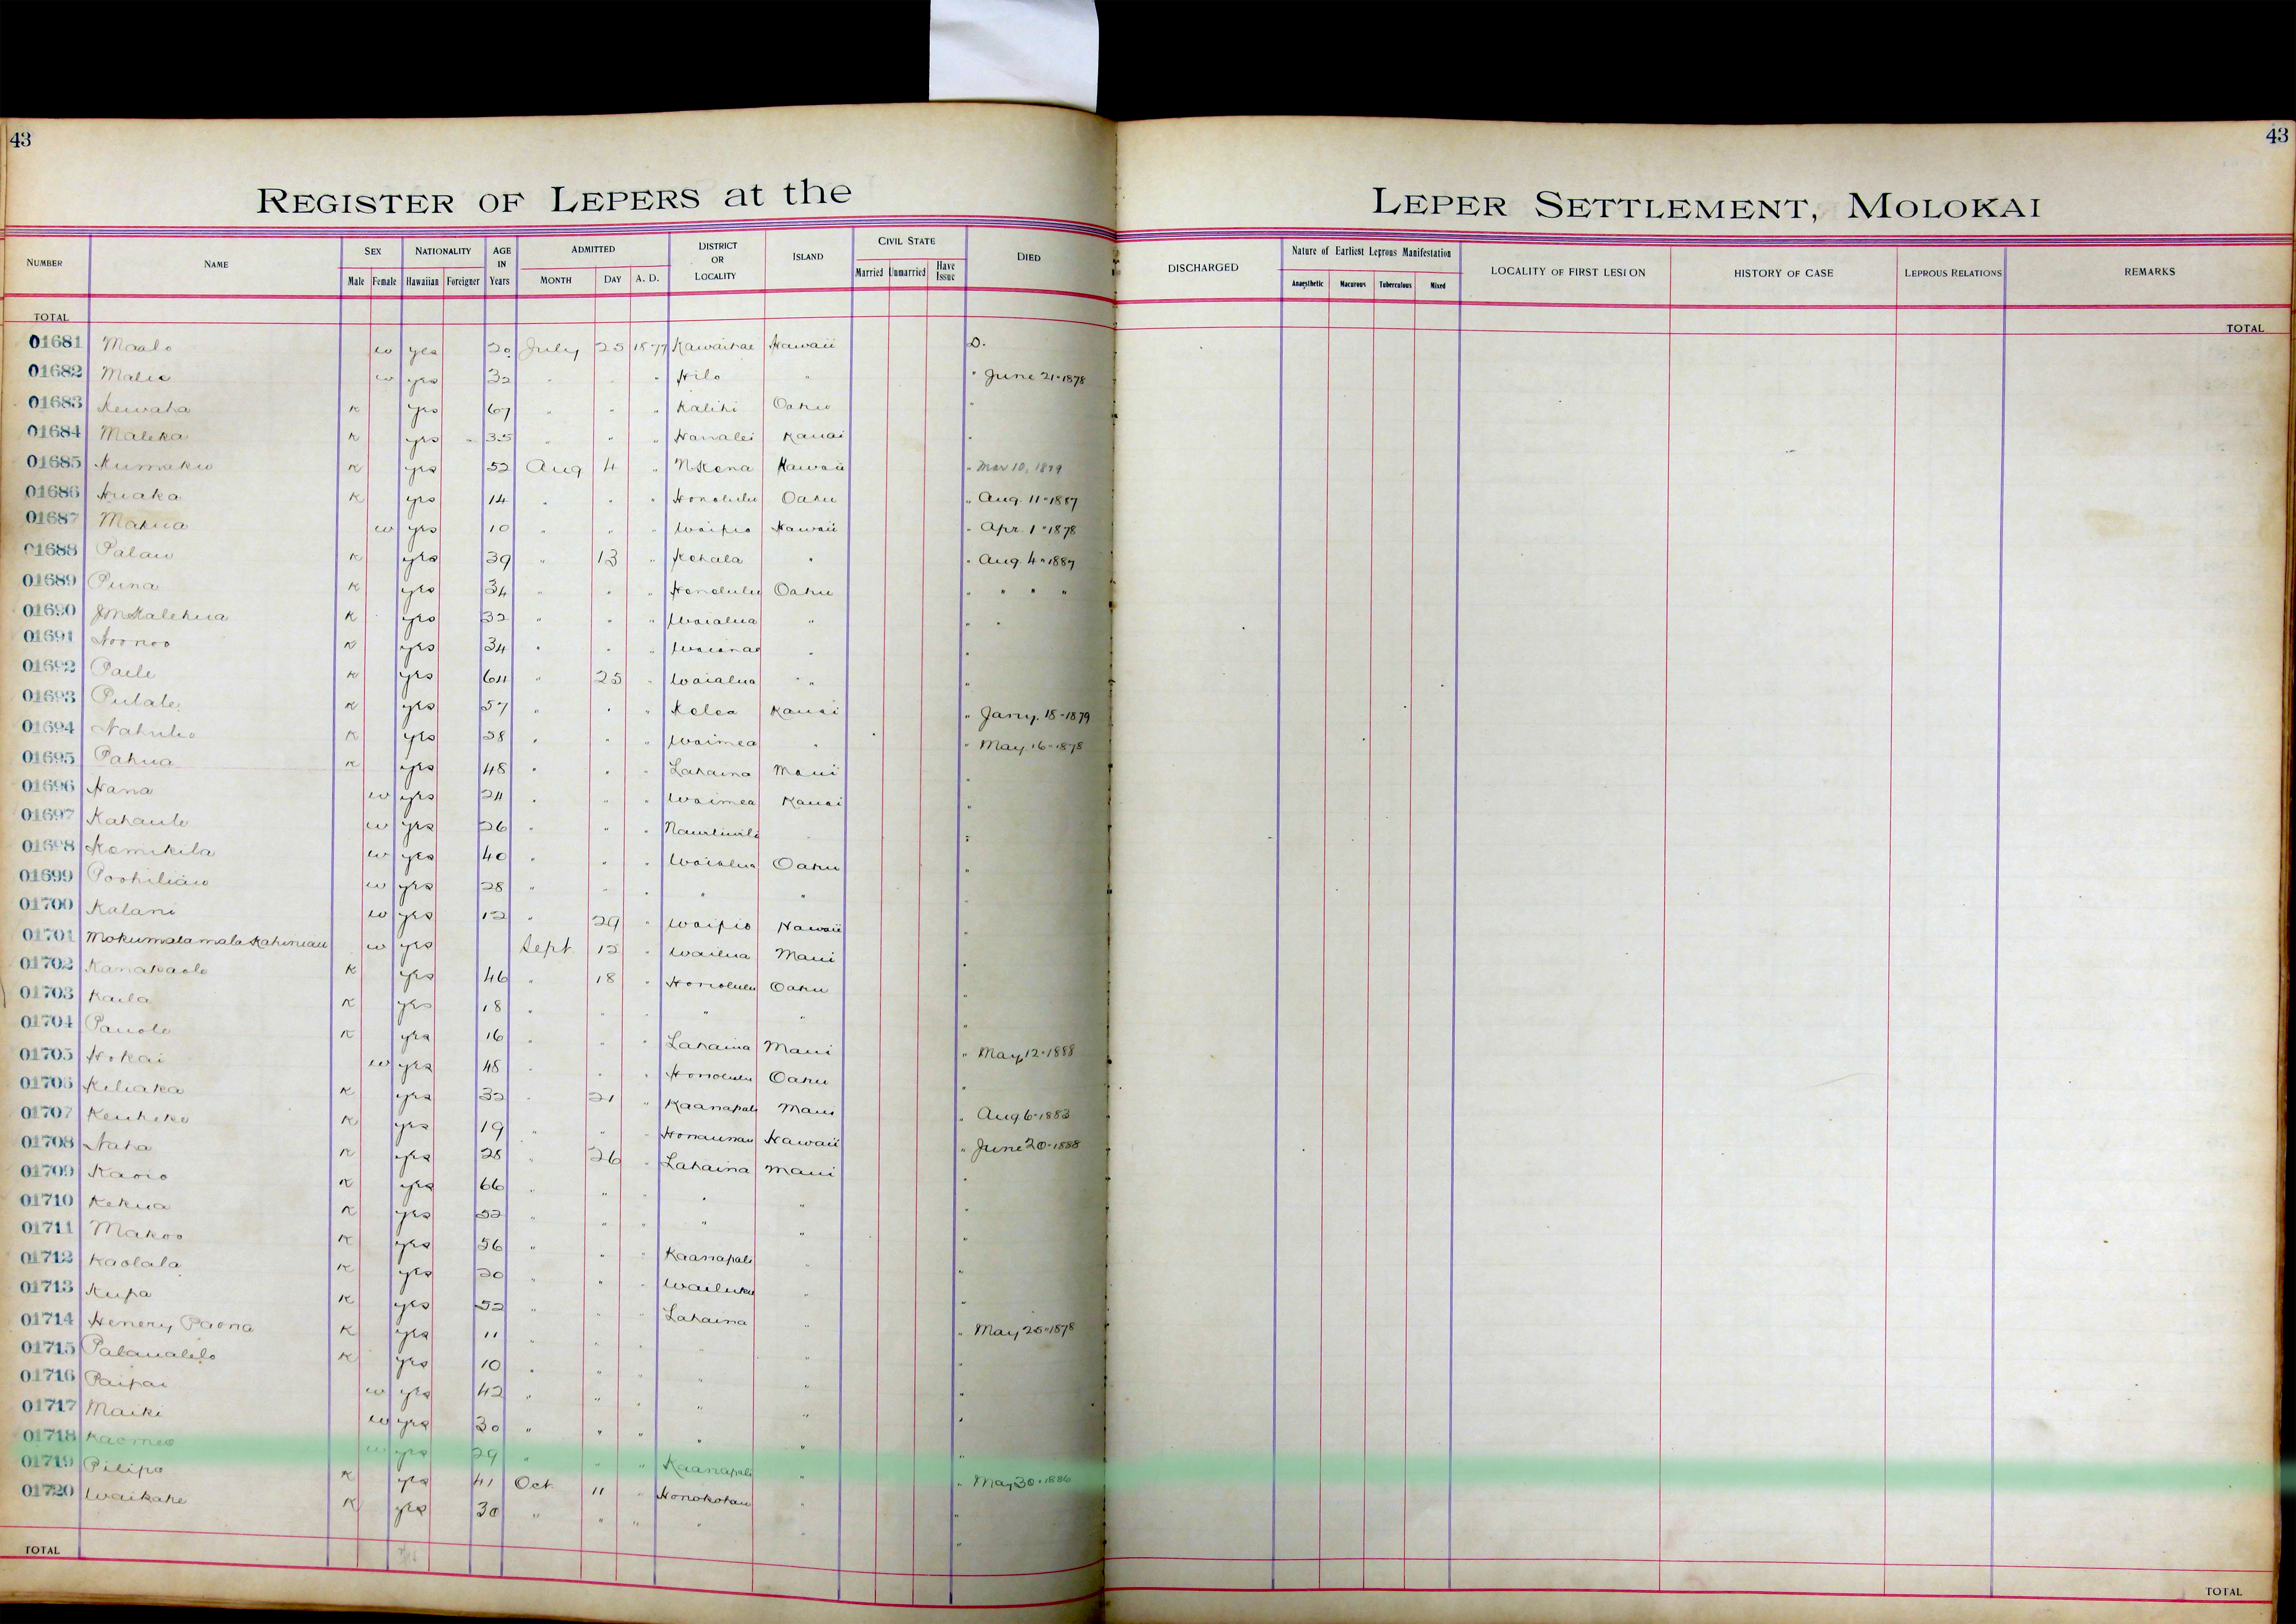 43
43
REGISTER OF LEPERS at the
LEPER SETTLEMENT, MOLOKAI
NUMBER NAME SEX Male Female NATIONALITY Hawaiian Foreigner AGE IN Years ADMITTED MONTH DAY A. D. DISTRICT OR LOCALITY ISLAND CIVIL STATE Married Unmarried Have Issue DIED
DISCHARGED Nature of Earliest Leprous Manifestation Anaesthetic Macurous Tuberculous Mixed LOCALITY OF FIRST LESION HISTORY OF CASE LEPROUS RELATIONS REMARKS
TOTAL
TOTAL
01681 Maalo w yes 20 July 25 1877 Kawaihae Hawaii D.
01682 Malie w yes 32 " " " Hilo " " June 21-1878
01683 Kewaha K yes 67 " " " Kalihi Oahu "
01684 Maleka K yes 35 " " " Hanalei Kauai "
01685 Kumaku K yes 52 Aug 4 " N Kona Hawaii " Mar 10, 1879
01686 Huaka K yes 14 " " " Honolulu Oahu " Aug. 11-1887
01687 Makua w yes 10 " " " Waipio Hawaii " Apr. 1-1878
01688 Palau K yes 39 " 13 " Kohala " " Aug. 4-1887
01689 Puna K yes 34 " " " Honolulu Oahu " " " "
01690 J M Kalehua K yes 32 " " " Waialua " " "
01691 Noonoo K yes 34 " " " Waianae " "
01692 Paele K yes 64 " 25 " Waialua " "
01693 Pulale K yes 57 " " " Kolea Kauai " Jany. 18-1879
01694 Nahulu K yes 28 " " " Waimea " " May 16-1878
01695 Pahua K yes 48 " " " Lahaina Maui "
01696 Hana w yes 24 " " " Waimea Kauai "
01697 Kahaule w yes 26 " " " Nawiliwili "
01698 Kamikila w yes 40 " " " Waialua Oahu "
01699 Poohiliau w yes 28 " " " " " "
01700 Kalani w yes 12 " 29 " Waipio Hawaii "
01701 Mokumalamala Kahiniau w yes Sept 12 " Wailua Maui "
01702 Kanakaole K yes 46 " 18 " Honolulu Oahu "
01703 Kaila K yes 18 " " " " " "
01704 Pauole K yes 16 " " " Lahaina Maui " May 12-1888
01705 Hokai w yes 48 " " " Honolulu Oahu "
01706 Keliaka K yes 32 " 21 " Kaanapali Maui " Aug 6-1883
01707 Keuheke K yes 19 " " " Honaunau Hawaii " June 20-1888
01708 Naha K yes 28 " 26 " Lahaina Maui "
01709 Kaoio K yes 66 " " " " " "
01710 Kekua K yes 52 " " " " " "
01711 Makoo K yes 56 " " " Kaanapali " "
01712 Kaolala K yes 20 " " " Wailuku " "
01713 Kupa K yes 52 " " " Lahaina " " May 25-1878
01714 Henery Paona K yes 11 " " " " " "
01715 Palaualelo K yes 10 " " " " " "
01716 Paipai w yes 42 " " " " " "
01717 Maiki w yes 30 " " " " " "
01718 Kaomeo w yes 29 " " " Kaanapali " " May 30-1886
01719 Pilipo K yes 41 Oct 11 " Honokohau " "
01720 Waikahe K yes 30 " " " " " "
TOTAL
TOTAL